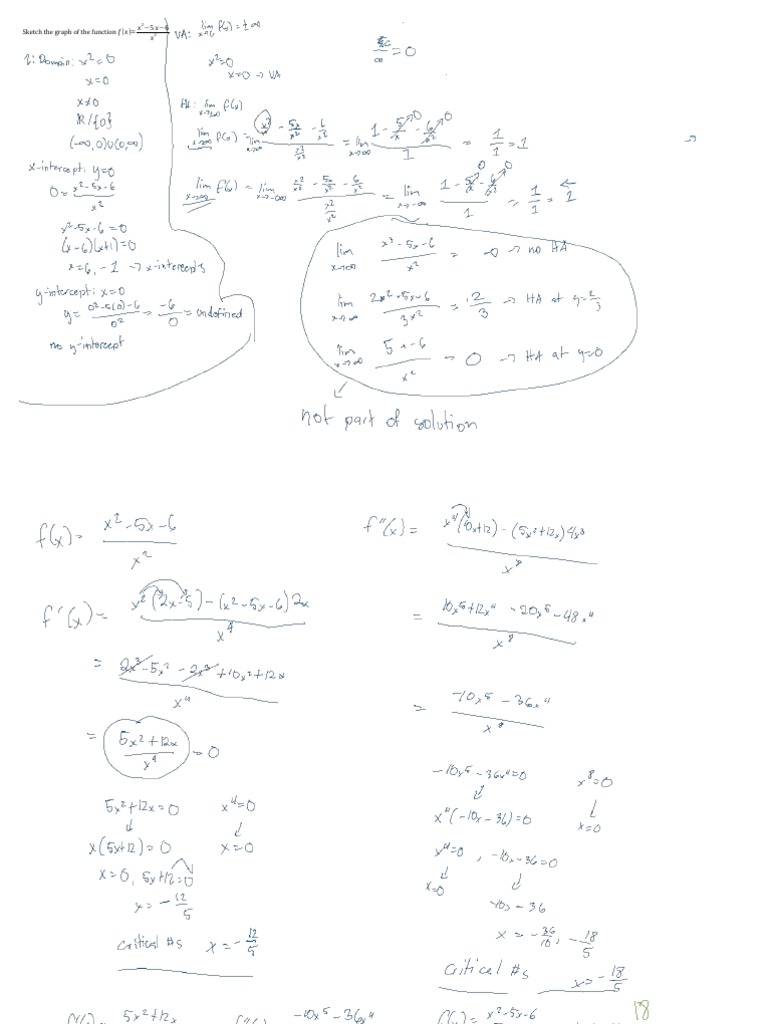 Sketch the graph of the function f(x)= x²−5x−6 / x²
1: Domain: x²=0
x=0
x≠0
R/{0}
(-∞,0)∪(0,∞)
x-intercept: y=0
0= x²-5x-6 / x²
x²-5x-6=0
(x-6)(x+1)=0
x=6, -1 → x-intercepts
y-intercept: x=0
y= 0²-5(0)-6 / 0² = -6/0 = undefined
no y-intercept
VA: lim f(x) = ±∞
x²=0
x=0 → VA
∞ = 0
HA: lim f(x)
x→±∞
lim f(x) = lim x²/x² - 5x/x² - 6/x² / x²/x² = lim 1 - 5/x - 6/x² / 1 = 1/1 = 1
x→∞ x→∞ x→∞
lim f(x) = lim x²/x² - 5x/x² - 6/x² / x²/x² = lim 1 - 5/x - 6/x² / 1 = 1/1 = 1
x→-∞ x→-∞
lim x³-5x-6 / x² = → no HA
x→∞
lim 2x²-5x-6 / 3x² = 2/3 → HA at y=2/3
x→∞
lim 5x-6 / x² = 0 → HA at y=0
x→∞
not part of solution
f(x)= x²-5x-6 / x²
f'(x)= x²(2x-5)-(x²-5x-6)2x / x⁴
= 2x³-5x²-2x³+10x²+12x / x⁴
= 5x²+12x / x⁴ =0
5x²+12x=0 x⁴=0
x(5x+12)=0 x=0
x=0, 5x+12=0
x= -12/5
critical #s x= -12/5
f''(x)= x⁴(10x+12)-(5x²+12x)4x³ / x⁸
= 10x⁵+12x⁴-20x⁵-48x⁴ / x⁸
= -10x⁵-36x⁴ / x⁸
-10x⁵-36x⁴=0 x⁸=0
x⁴(-10x-36)=0 x=0
x⁴=0, -10x-36=0
x=0
-10x=36
x= -36/10, -18/5
critical #s x= -18/5
5x²+12x -10x⁵-36x⁴ x²-5x-6
18